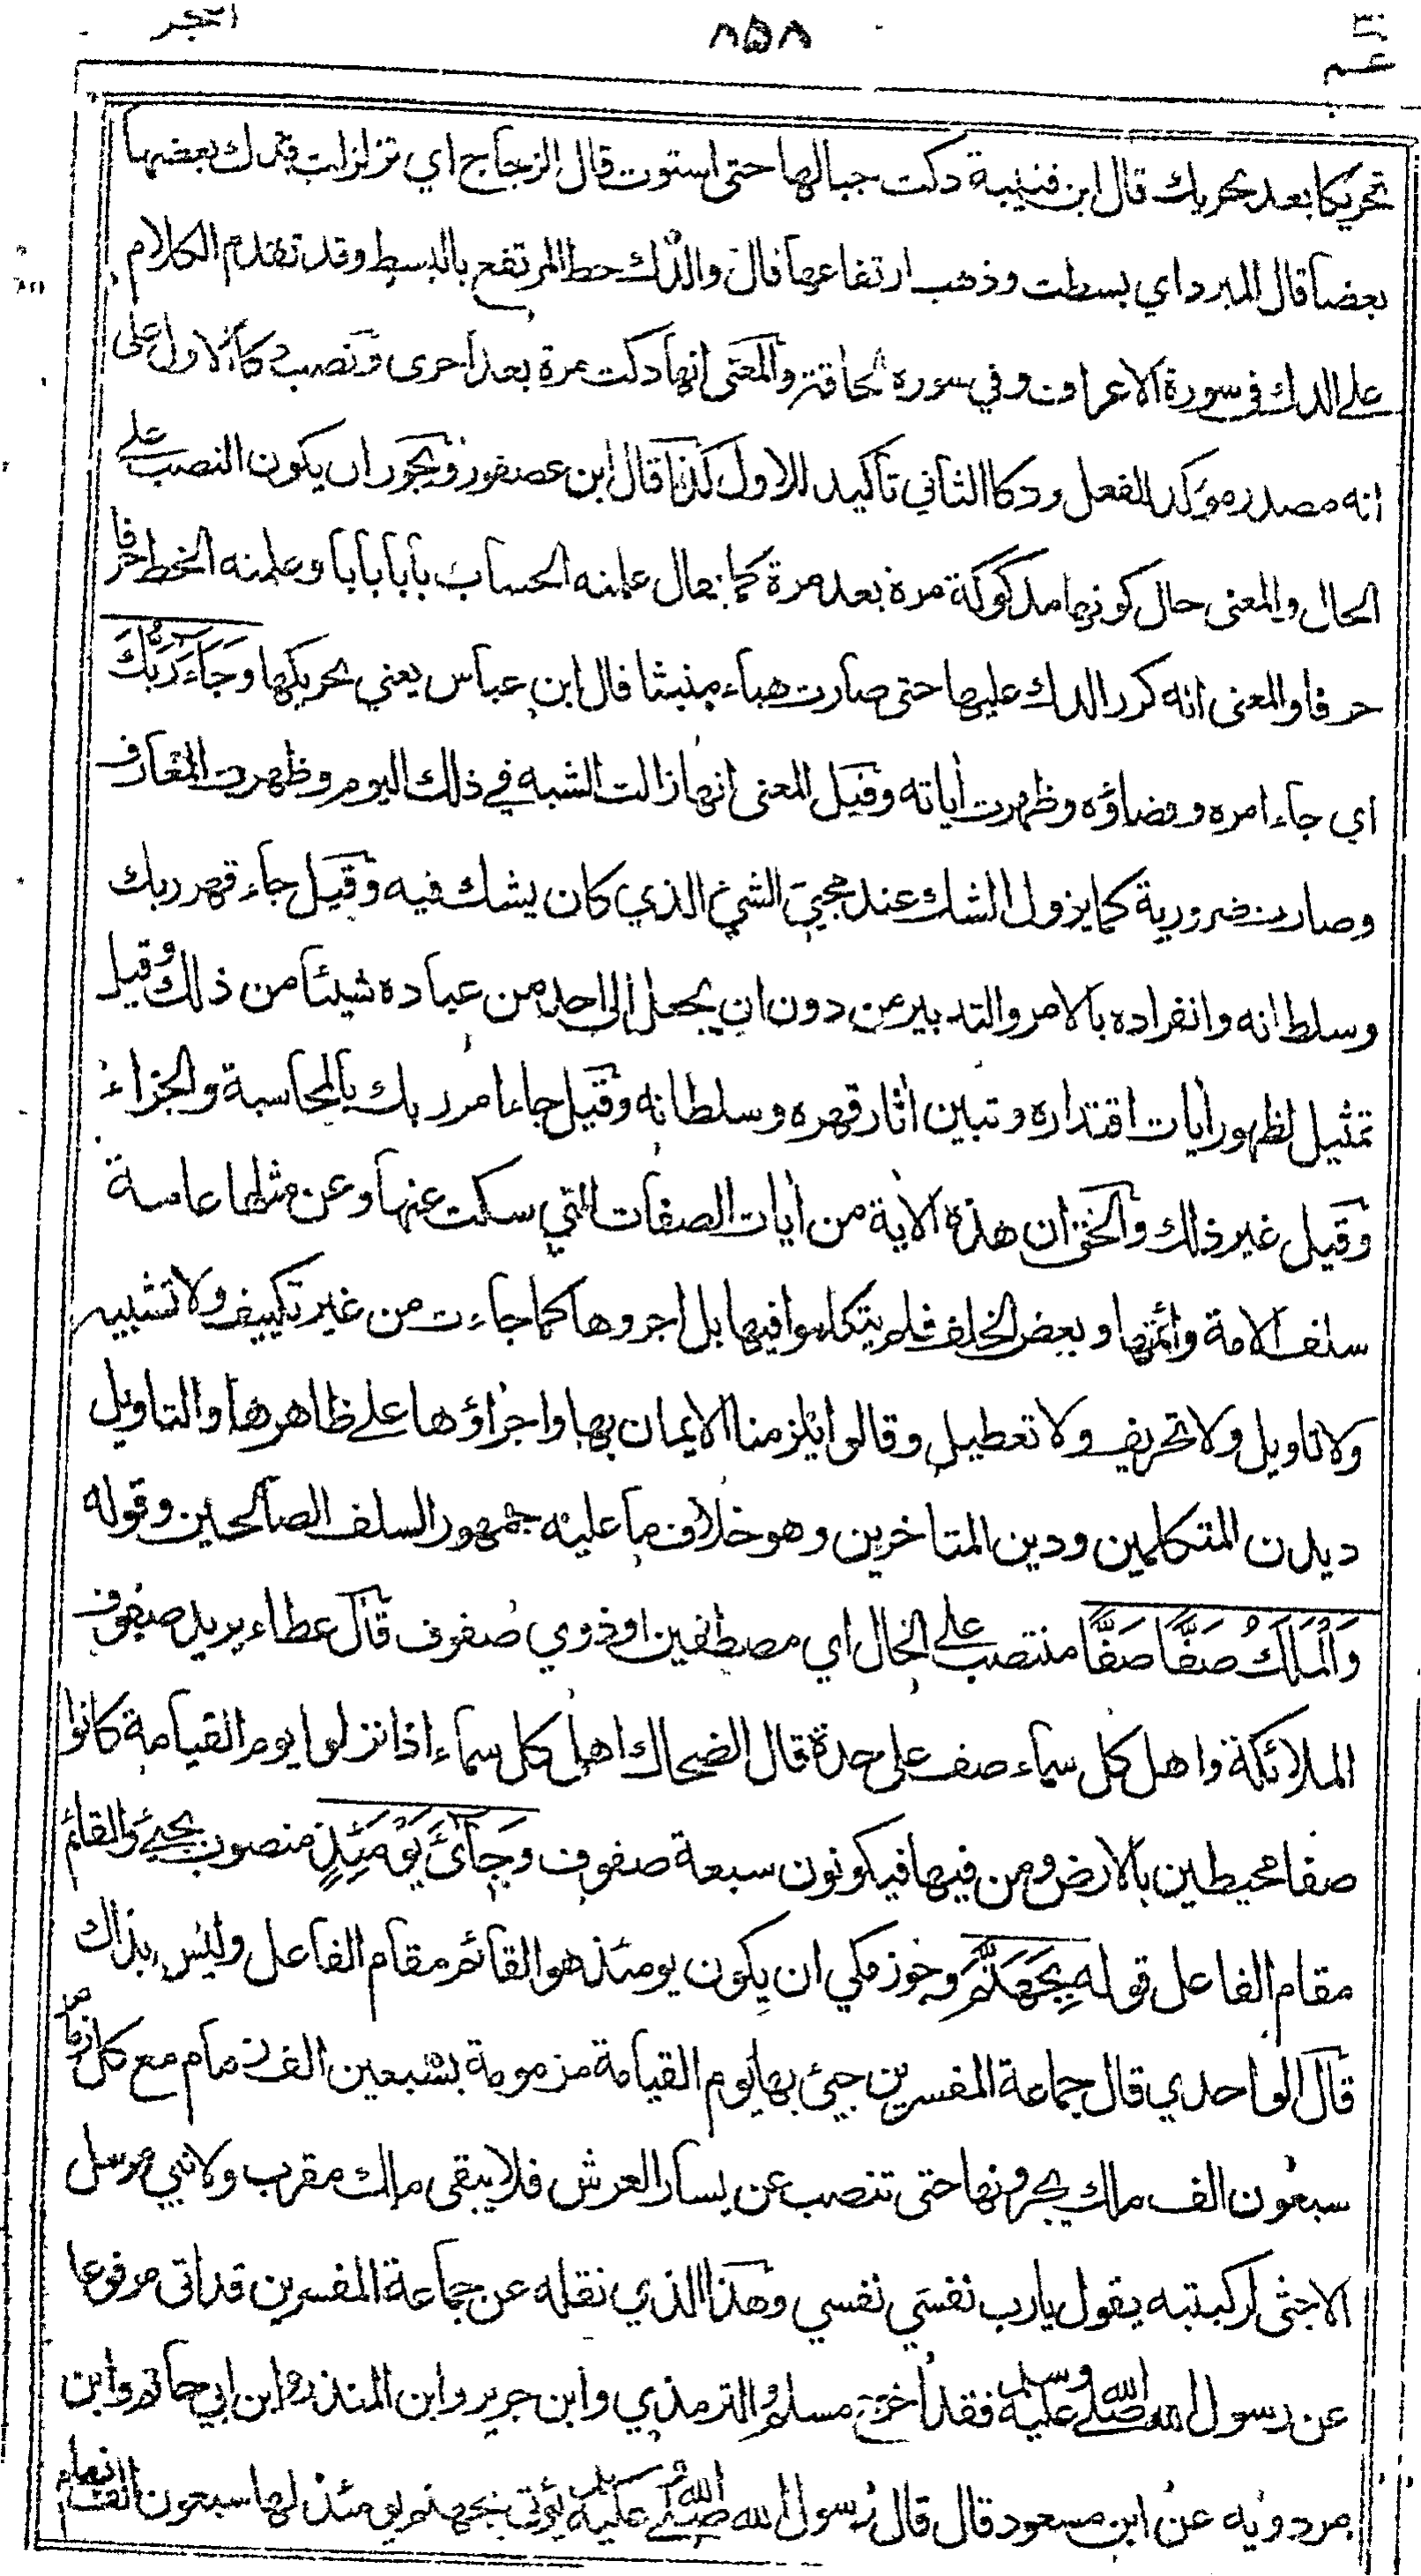 عم ٣٠ ٨٥٨ الفجر
تحريكا بعد تحريك قال ابن قتيبة دكت جبالها حتى استوت قال الزجاج اي تزلزلت فدك بعضها
بعضا قال المبرد اي بسطت وذهب ارتفاعها قال والدك حط المرتفع بالبسط وقد تقدم الكلام
على الدك في سورة الاعراف وفي سورة الحاقة والمعنى انها دكت مرة بعد اخرى ونصب دكا الاول على
انه مصدر مؤكد للفعل ودكا الثاني تاكيد للاول كذا قال ابن عصفور ويجوز ان يكون النصب على
الحال والمعنى حال كونها مدكوكة مرة بعد مرة كما يقال علمته الحساب بابا بابا وعلمته الخط حرفا
حرفا والمعنى انه كرر الدك عليها حتى صارت هباء منبثا قال ابن عباس يعني تحريكها وَجَاءَ رَبُّكَ
اي جاء امره وقضاؤه وظهرت اياته وقيل المعنى انها زالت الشبه في ذلك اليوم وظهرت المعارف
وصارت ضرورية كما يزول الشك عند مجيئ الشئ الذي كان يشك فيه وقيل جاء قهر ربك
وسلطانه وانفراده بالامر والتدبير من دون ان يجعل الى احد من عباده شيئا من ذلك وقيل
تمثيل لظهور ايات اقتداره وتبين اثار قهره وسلطانه وقيل جاء امر ربك بالمحاسبة والجزاء
وقيل غير ذلك والحق ان هذه الاية من ايات الصفات التي سكت عنها وعن مثلها عامة
سلف الامة وائمتها وبعض الخلف فلم يتكلموا فيها بل اجروها كما جاءت من غير تكييف ولا تشبيه
ولا تاويل ولا تحريف ولا تعطيل وقالوا يلزمنا الايمان بها واجراؤها على ظاهرها والتاويل
ديدن المتكلمين ودين المتاخرين وهو خلاف ما عليه جمهور السلف الصالحين وقوله
وَالْمَلَكُ صَفًّا صَفًّا منتصب على الحال اي مصطفين او ذوي صفوف قال عطاء يريد صفوف
الملائكة واهل كل سماء صف على حدة قال الضحاك اهل كل سماء اذا نزلوا يوم القيامة كانوا
صفا محيطين بالارض ومن فيها فيكونون سبعة صفوف وَجِائَ يَوْمَئِذٍ منصوب بجيئ والقائم
مقام الفاعل قوله بِجَهَنَّمَ وجوز مكي ان يكون يومئذ هو القائم مقام الفاعل وليس بذاك
قال الواحدي قال جماعة المفسرين جيئ بها يوم القيامة مزمومة بسبعين الف زمام مع كل زمام
سبعون الف ملك يجرونها حتى تنصب عن يسار العرش فلا يبقى ملك مقرب ولا نبي مرسل
الا جثى لركبتيه يقول يارب نفسي نفسي وهذا الذي نقله عن جماعة المفسرين قد اتى مرفوعا
عن رسول الله صلى الله عليه وسلم فقد اخرج مسلم والترمذي وابن جرير وابن المنذر وابن ابي حاتم وابن
مردويه عن ابن مسعود قال قال رسول الله صلى الله عليه وسلم يؤتى بجهنم يومئذ لها سبعون الف زمام